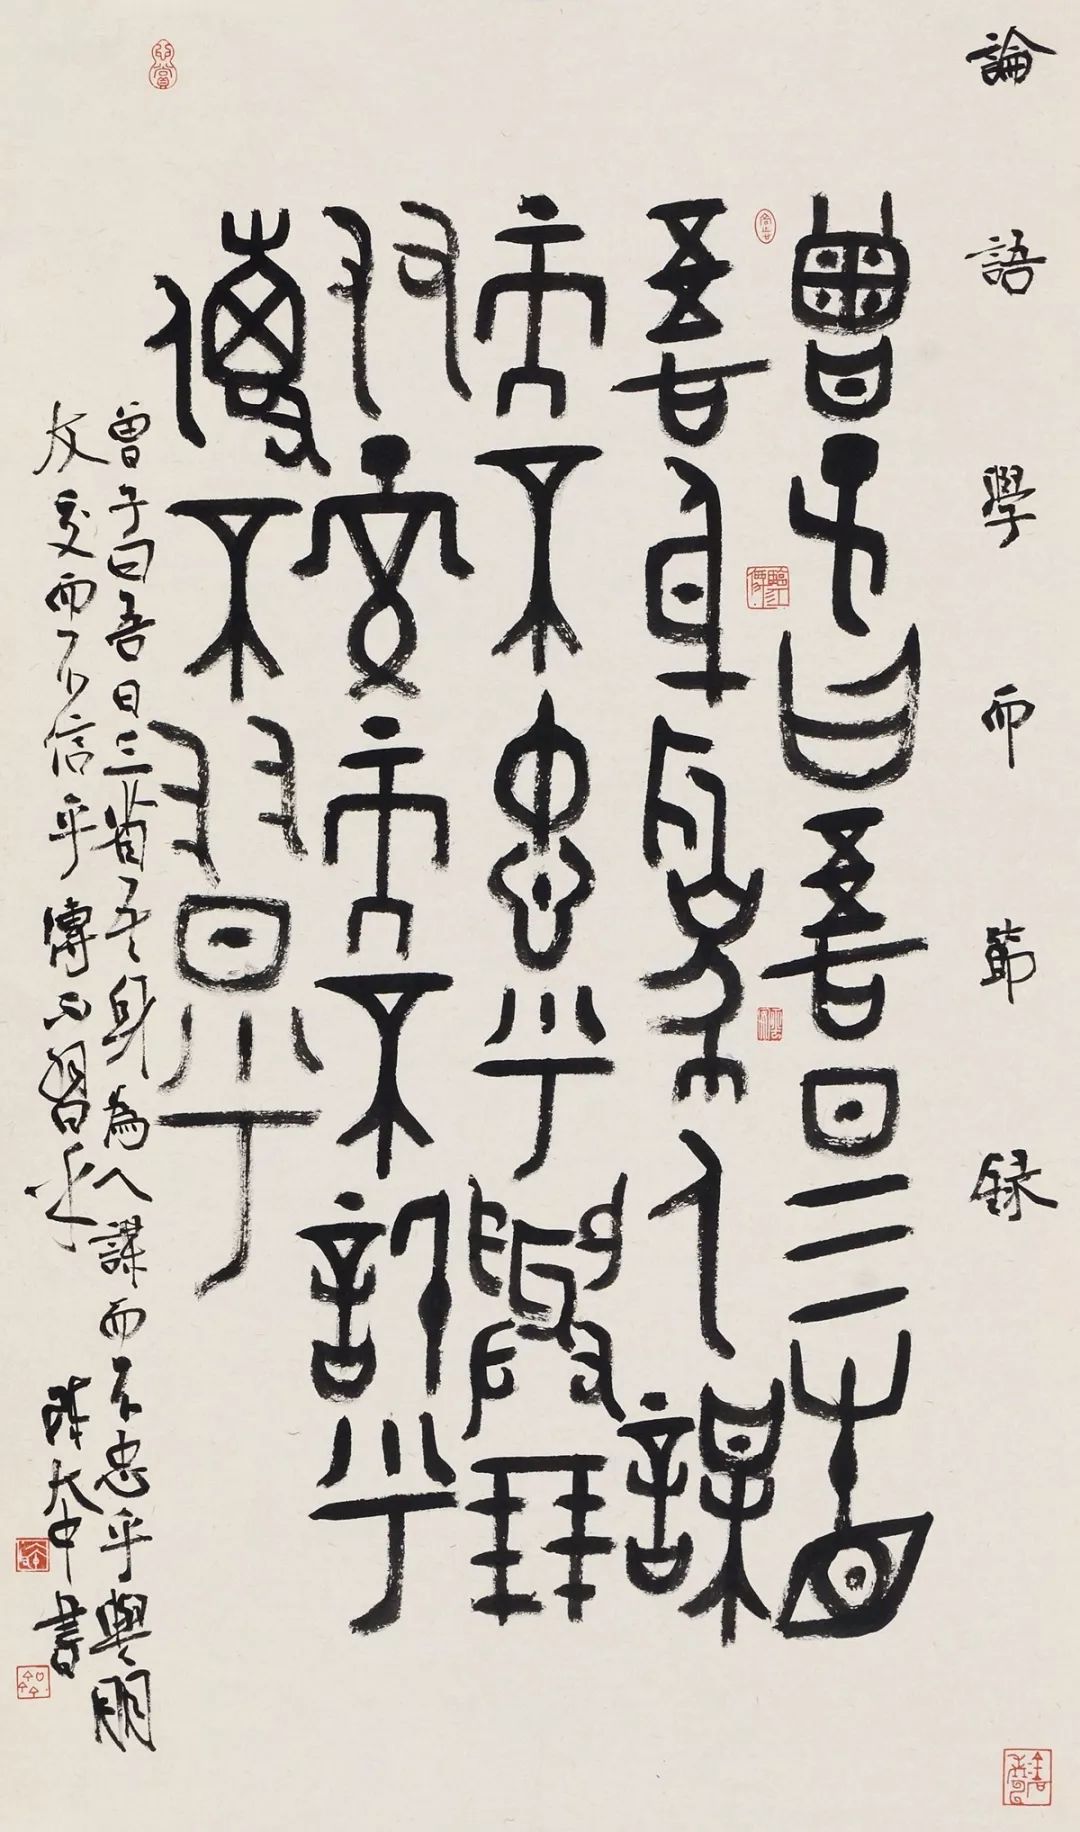 論語學而節録
曾子曰吾日三省
吾身為人謀
而不忠乎與朋
友交而不信乎
傳不習乎
曾子曰吾日三省吾身為人謀而不忠乎與朋
友交而不信乎傳不習乎 陳大中書